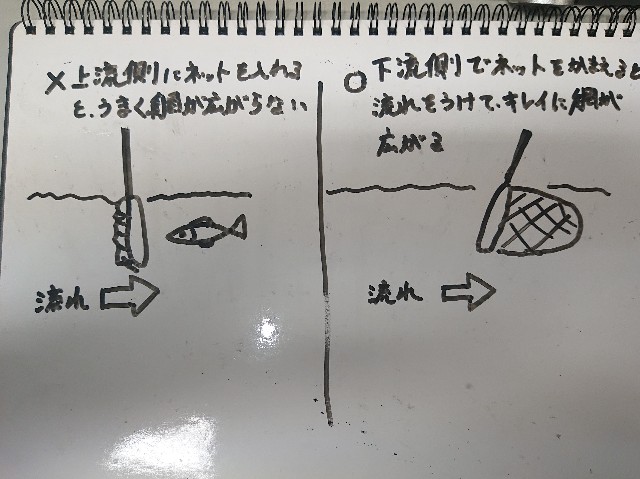 ×上流側にネットを入れる
と、うまく網が広がらない
流れ
○下流側でネットをかまえると
流れをうけて、キレイに網が
広がる
流れ